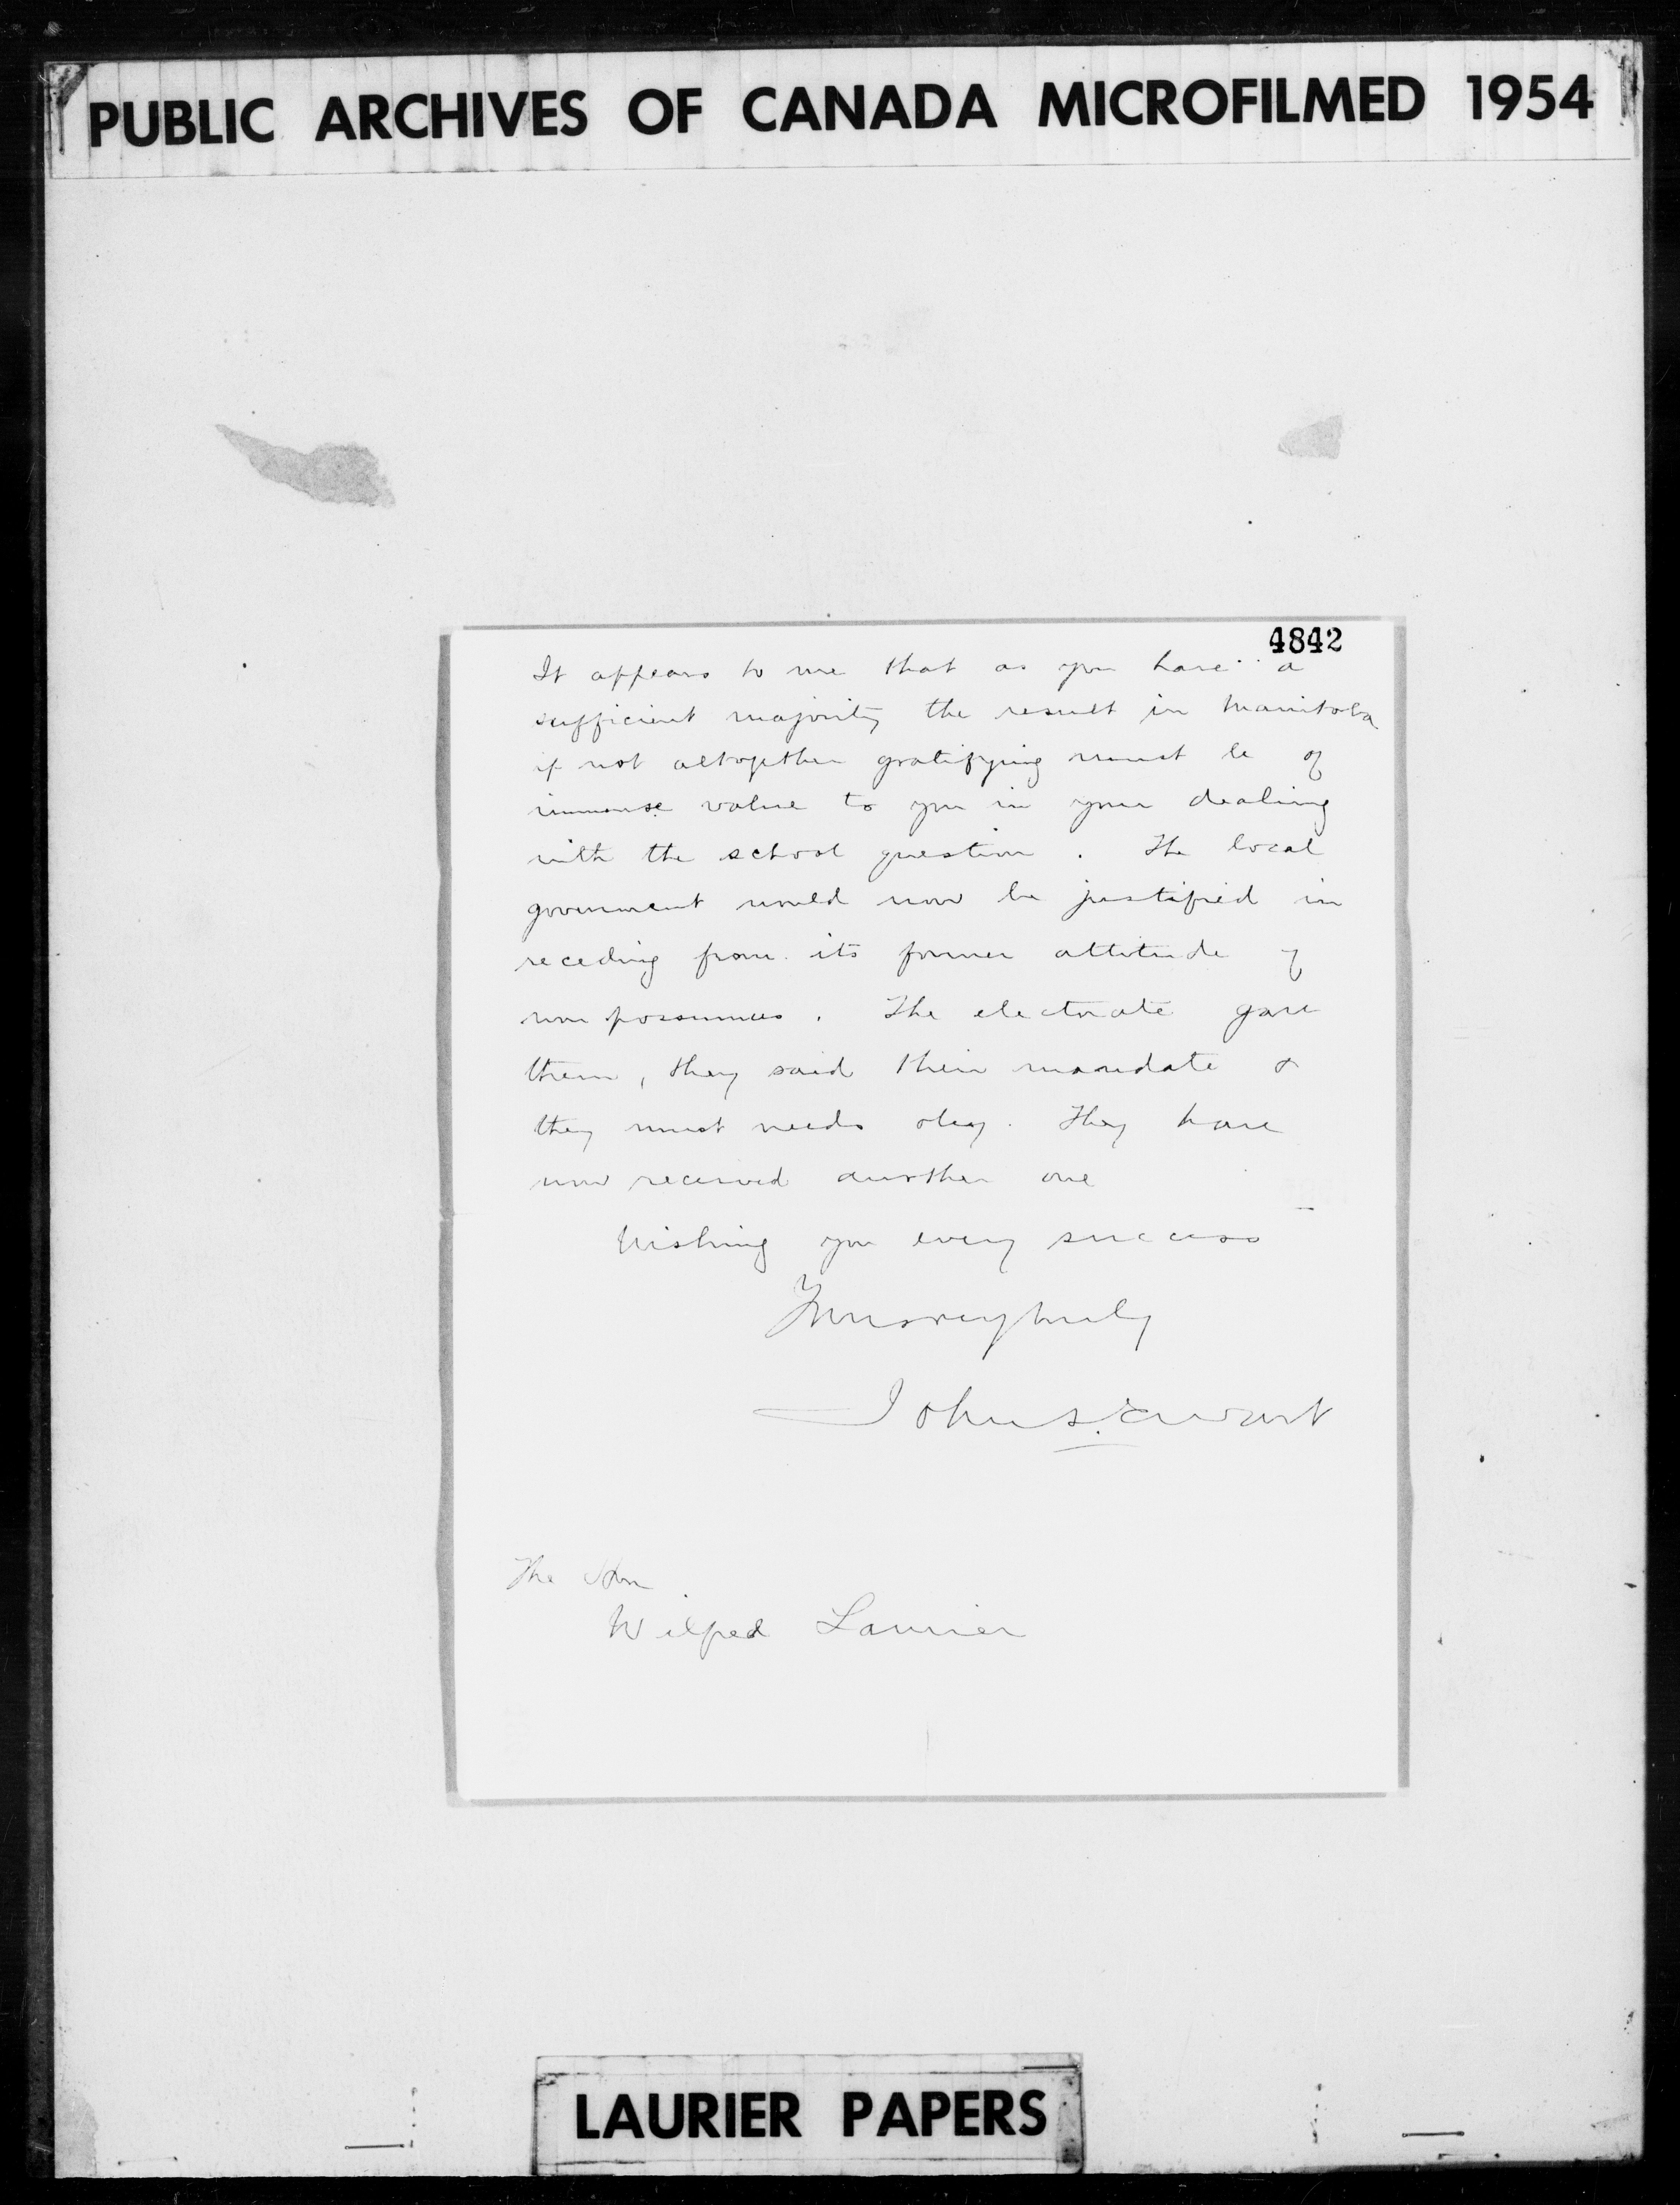 PUBLIC ARCHIVES OF CANADA MICROFILMED 1954
4842
It appears to me that as you have a
sufficient majority the result in Manitoba
if not altogether gratifying must be of
immense value to you in your dealing
with the school question. The local
government would now be justified in
receding from its former attitude of
non possumus. The electorate gave
them, they said their mandate &
they must needs obey. They have
now received another one
Wishing you every success
Yours very truly
John S. Ewart
The Hon
Wilfred Laurier
LAURIER PAPERS